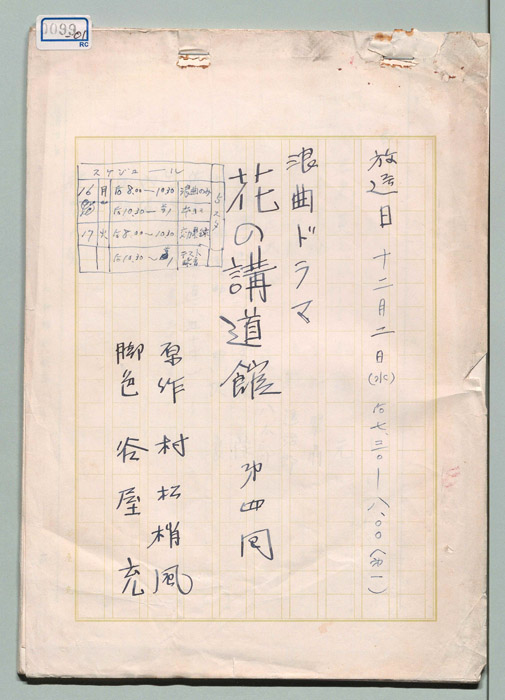 0099
RC
放送日 十二月二日(水) 后七.三〇―八.〇〇(第一)
浪曲ドラマ
花の講道館 第四回
原作 村松梢風
脚色 谷屋充
スケジュール
5スタ
16 月 后8.00〜10.30 浪曲のみ
后10.30〜
17 火 后8.00〜10.30
后10.30〜 テスト